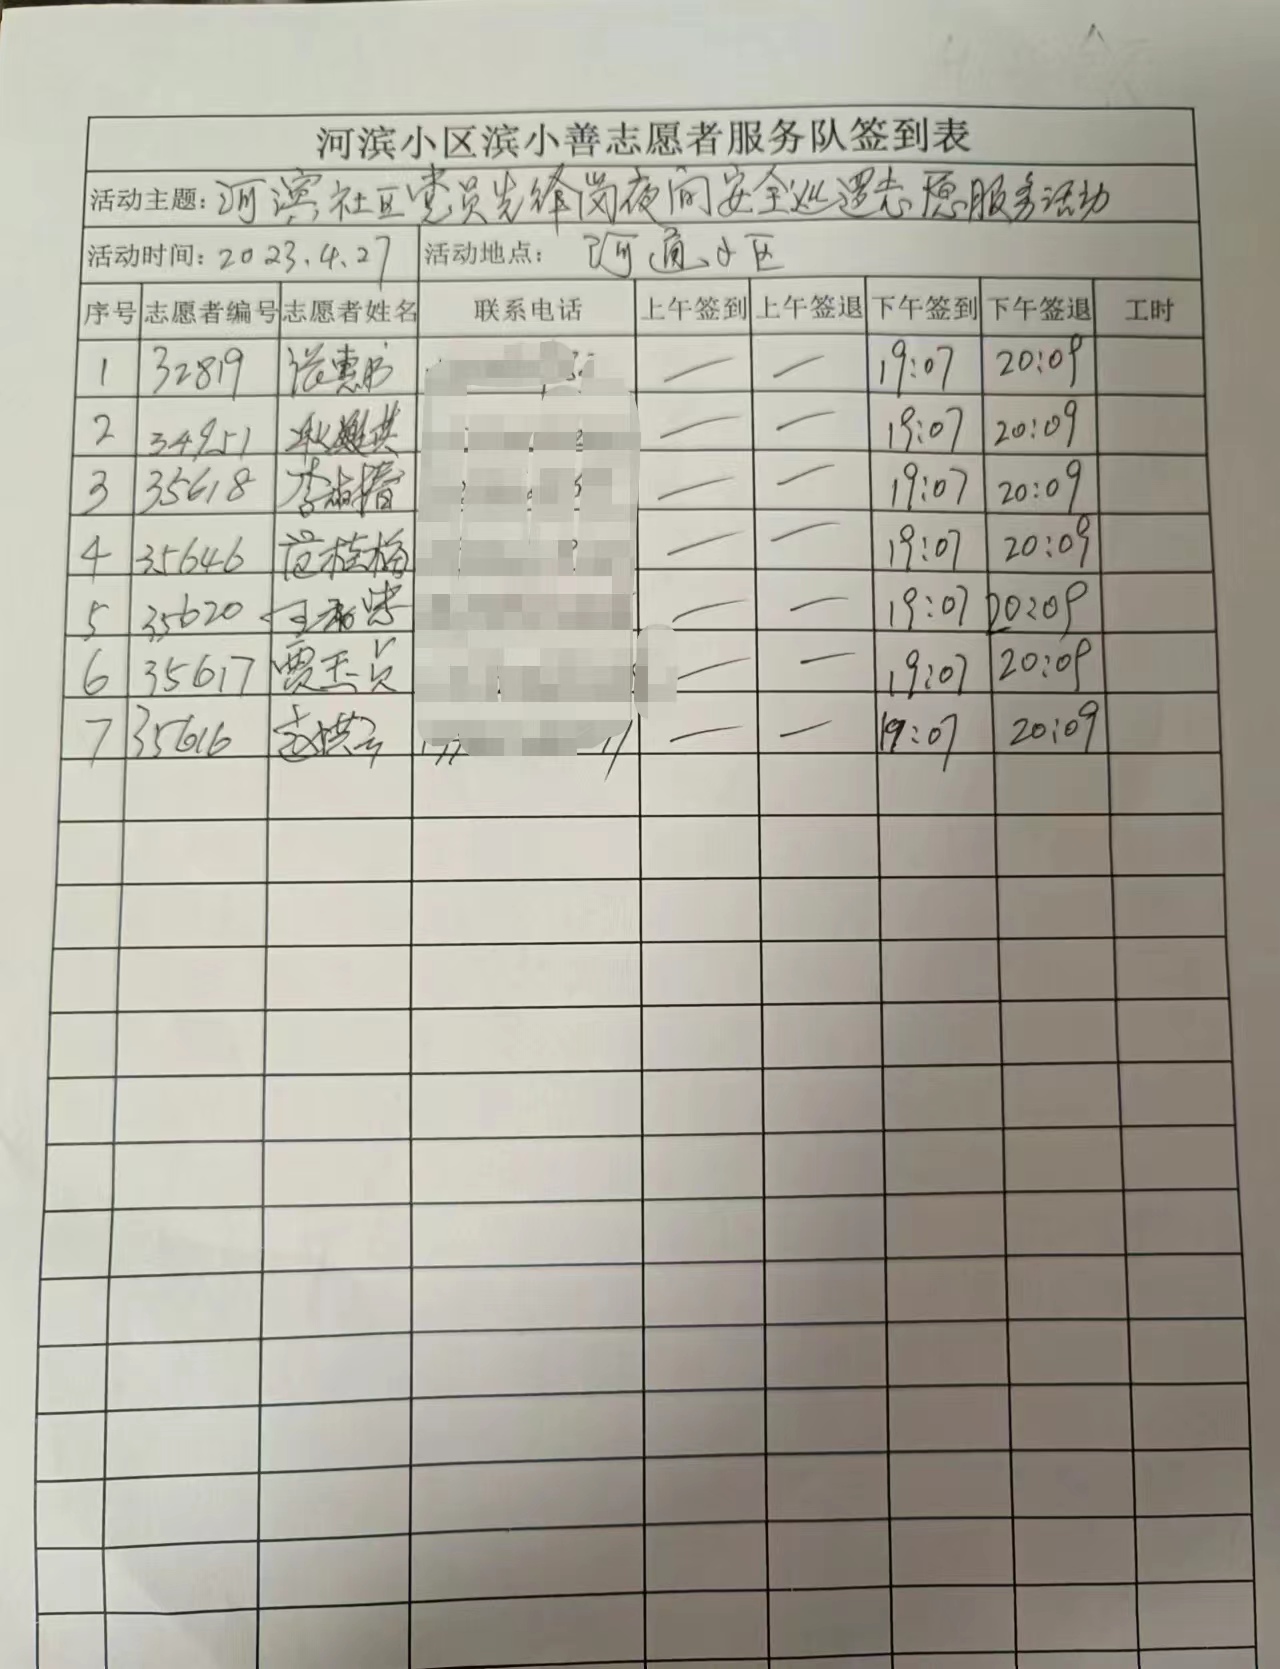 河滨小区滨小善志愿者服务队签到表
活动主题：河滨社区党员先锋岗夜间安全巡逻志愿服务活动
活动时间：2023.4.27 活动地点： 河道小区
序号 志愿者编号 志愿者姓名 联系电话 上午签到 上午签退 下午签到 下午签退 工时
1 32819 — — 19:07 20:09
2 34951 — — 19:07 20:09
3 35618 李 — — 19:07 20:09
4 35646 范桂梅 — — 19:07 20:09
5 35620 王 — — 19:07 20:09
6 35617 贾 — — 19:07 20:09
7 35616 赵 — — 19:07 20:09